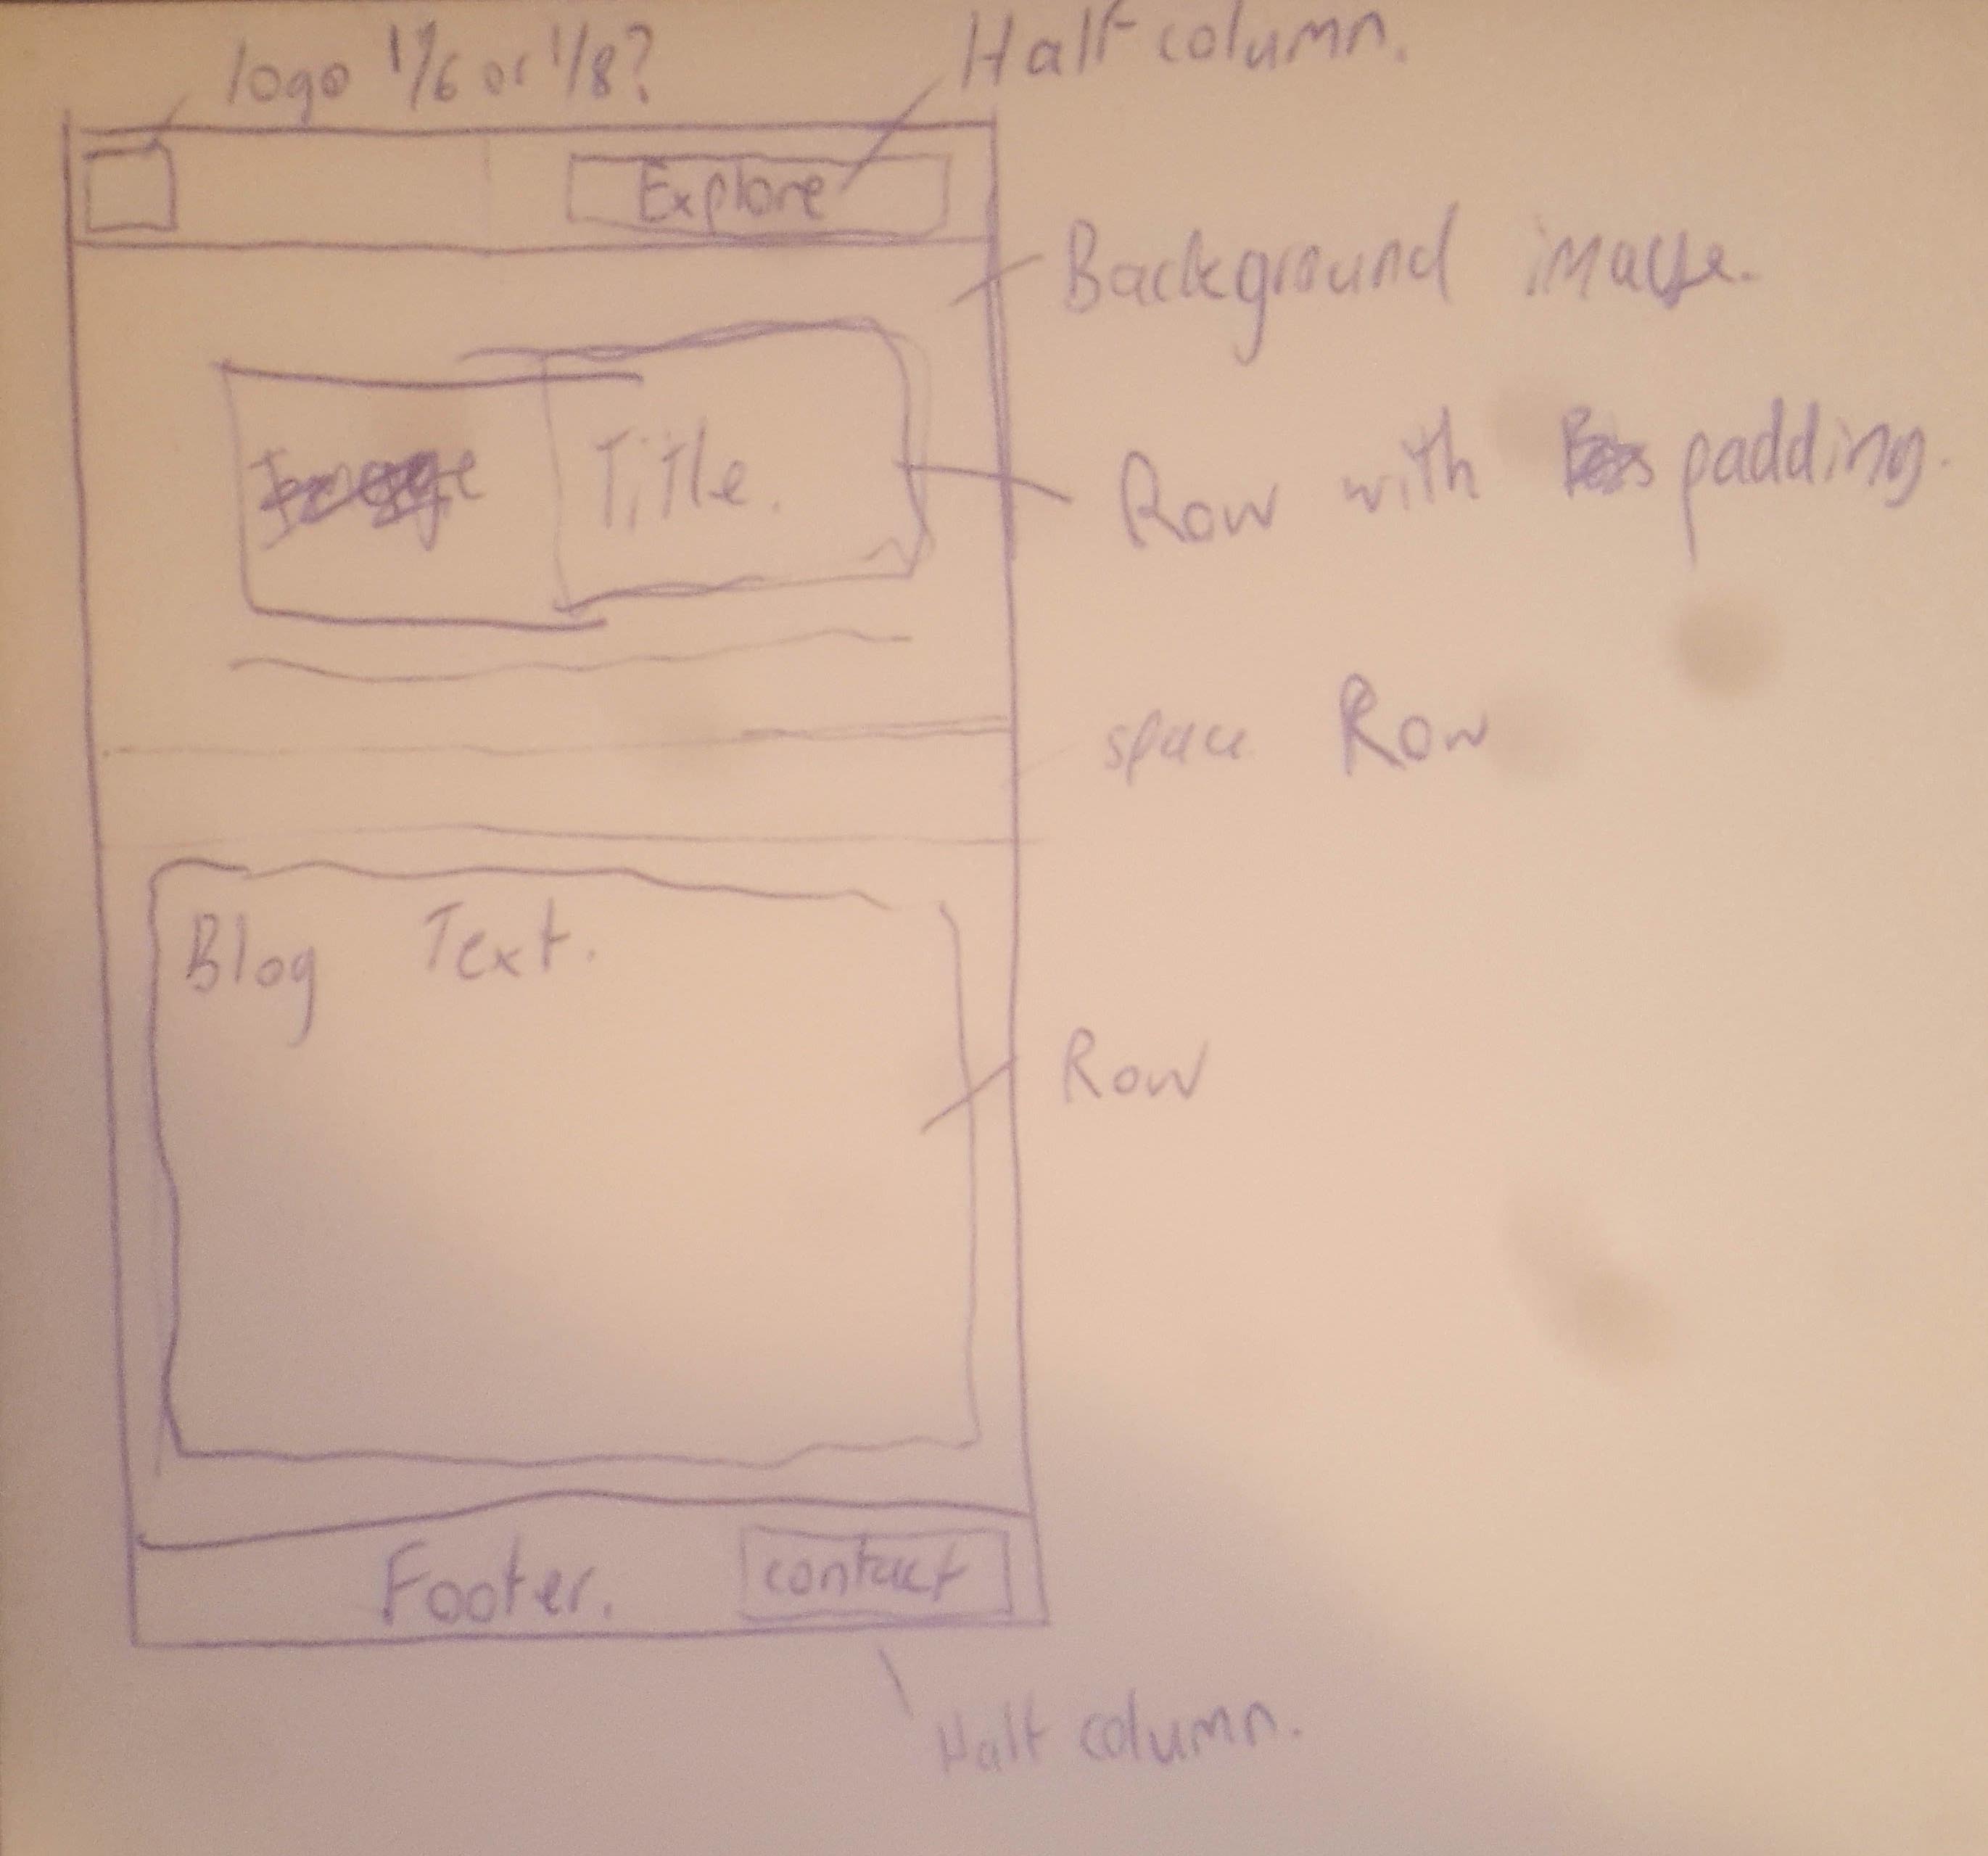 logo 1/6 or 1/8?
Half column.
Explore
Background image.
Title.
Row with padding.
space Row
Blog Text.
Row
Footer.
contact
Half column.